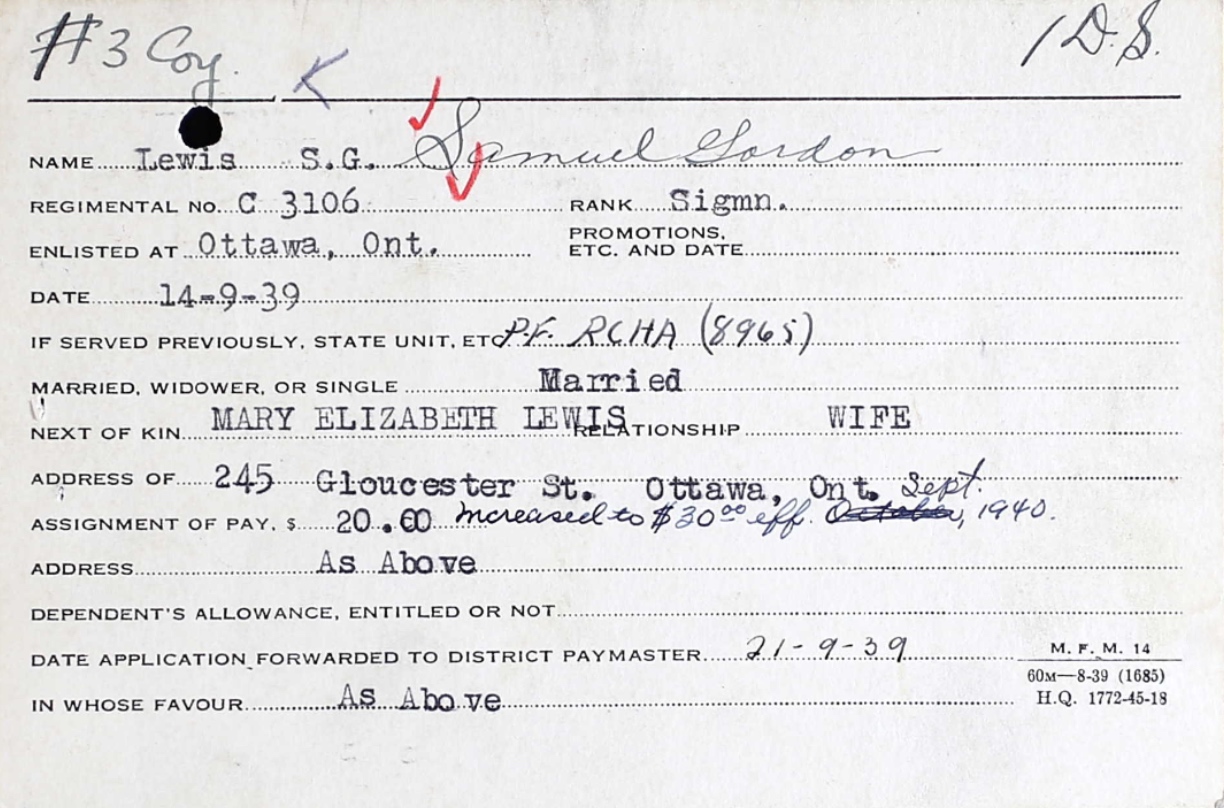 #3 Coy. 1 D.S.
K
NAME Lewis S.G. Samuel Gordon
REGIMENTAL NO. C 3106 RANK Sigmn.
ENLISTED AT Ottawa, Ont. PROMOTIONS, ETC. AND DATE
DATE 14-9-39
IF SERVED PREVIOUSLY, STATE UNIT, ETC P.F. RCHA (8965)
MARRIED, WIDOWER, OR SINGLE Married
NEXT OF KIN MARY ELIZABETH LEWIS RELATIONSHIP WIFE
ADDRESS OF 245 Gloucester St. Ottawa, Ont. Sept.
ASSIGNMENT OF PAY, $ 20.00 increased to $30⁰⁰ eff. October, 1940.
ADDRESS As Above
DEPENDENT'S ALLOWANCE, ENTITLED OR NOT
DATE APPLICATION FORWARDED TO DISTRICT PAYMASTER 21-9-39 M. F. M. 14
60M—8-39 (1685)
IN WHOSE FAVOUR As Above H.Q. 1772-45-18